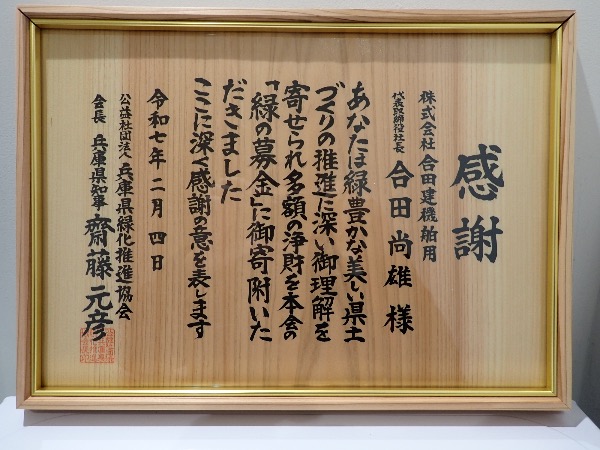 感謝
株式会社 合田建機舶用
代表取締役社長 合田尚雄 様
あなたは緑豊かな美しい県土
づくりの推進に深い御理解を
寄せられ多額の浄財を本会の
「緑の募金」に御寄附いた
だきました
ここに深く感謝の意を表します
令和七年二月四日
公益社団法人 兵庫県緑化推進協会
会長 兵庫県知事 齋藤元彦